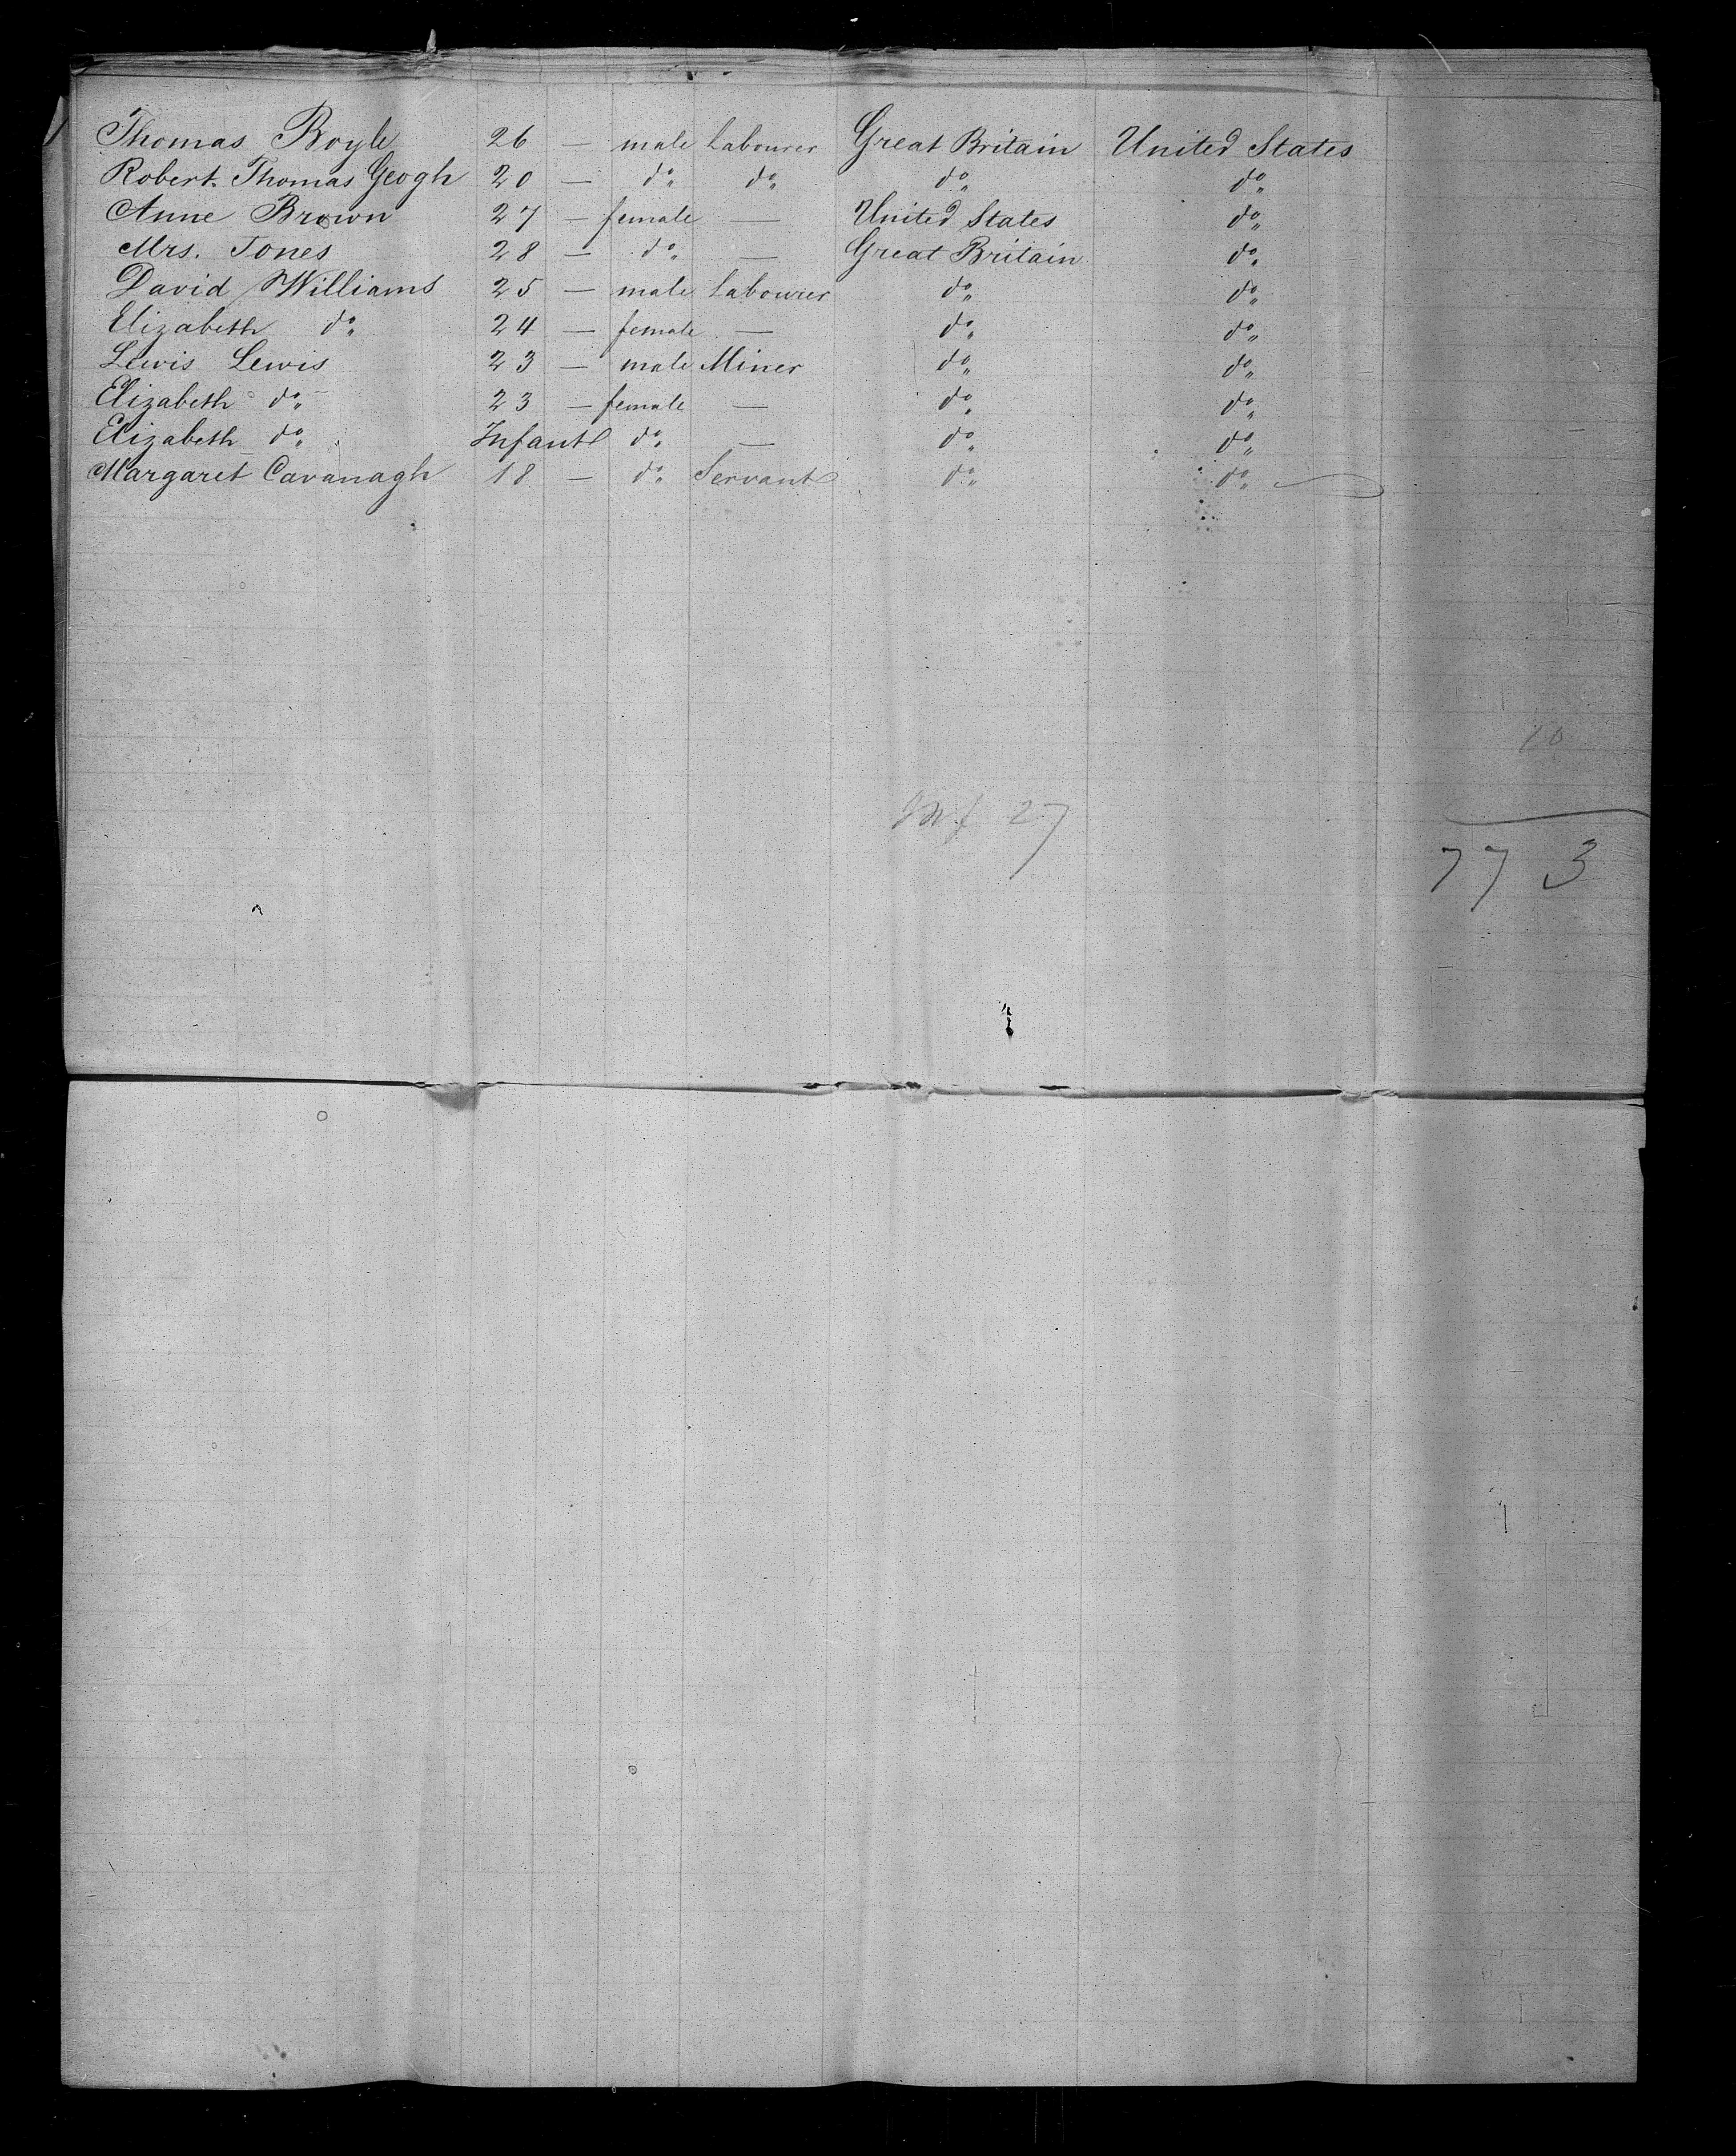 Thomas Boyle 26 — male Labourer Great Britain United States
Robert Thomas Geogh 20 — do do do do
Anne Brown 27 — female — United States do
Mrs. Jones 28 — do — Great Britain do
David Williams 25 — male Labourer do do
Elizabeth do 24 — female — do do
Lewis Lewis 23 — male Miner do do
Elizabeth do 23 — female — do do
Elizabeth do Infant do — do do
Margaret Cavanagh 18 — do Servant do do
10
Inf 27
773